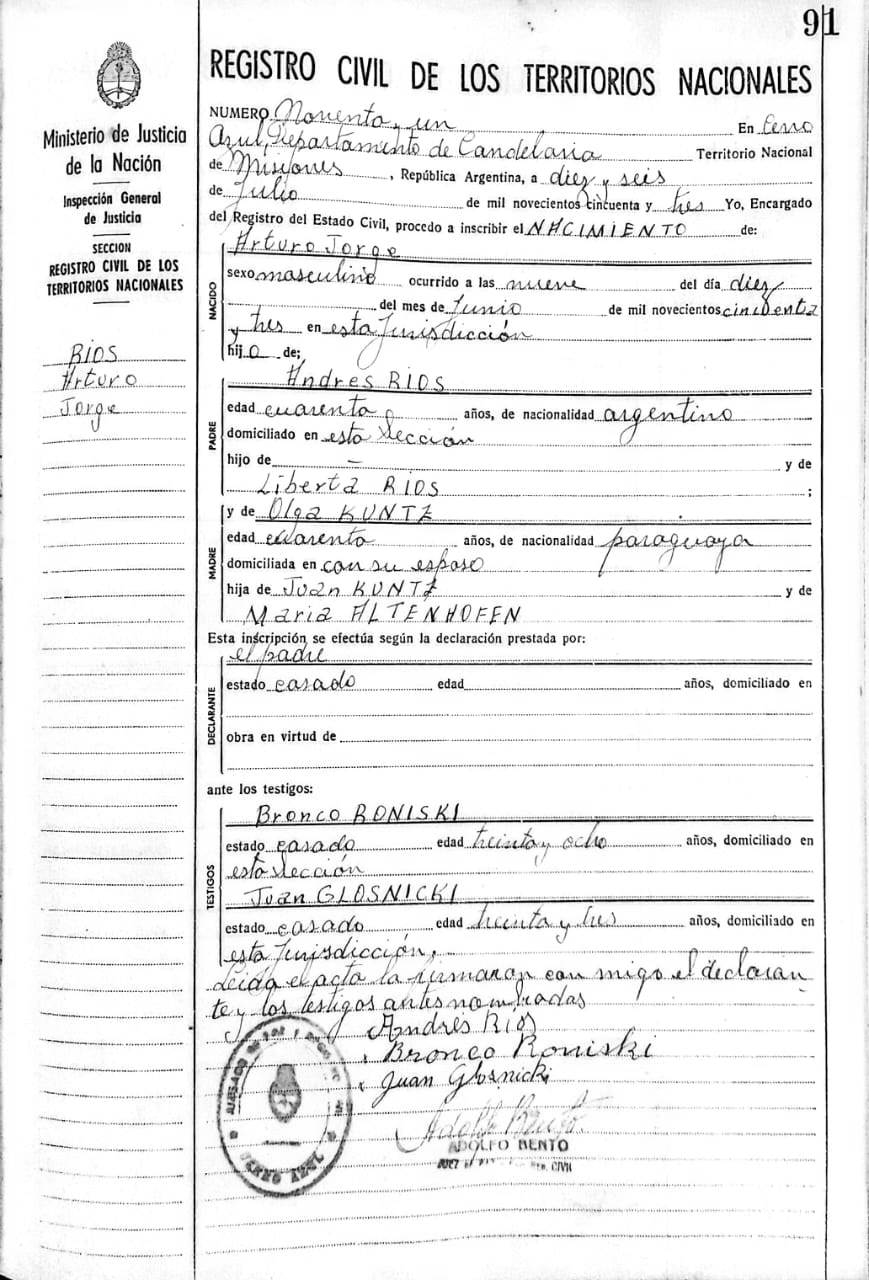 91
Ministerio de Justicia
de la Nación
Inspección General
de Justicia
SECCION
REGISTRO CIVIL DE LOS
TERRITORIOS NACIONALES
RIOS
Arturo
Jorge
REGISTRO CIVIL DE LOS TERRITORIOS NACIONALES
NUMERO Noventa y un En Cerro
Azul, Departamento de Candelaria Territorio Nacional
de Misiones, República Argentina, a diez y seis
de Julio de mil novecientos cincuenta y tres Yo, Encargado
del Registro del Estado Civil, procedo a inscribir el NACIMIENTO de:
NACIDO
Arturo Jorge
sexo masculino ocurrido a las nueve del día diez
del mes de Junio de mil novecientos cincuenta
y tres en esta Jurisdicción
hijo de;
PADRE
Andres RIOS
edad cuarenta años, de nacionalidad argentino
domiciliado en esta Sección
hijo de — y de
Liberta RIOS ;
MADRE
y de Olga KUNTZ
edad cuarenta años, de nacionalidad paraguaya
domiciliada en con su esposo
hija de Juan KUNTZ y de
Maria ALTENHOFEN
Esta inscripción se efectúa según la declaración prestada por:
DECLARANTE
el padre
estado casado edad años, domiciliado en
obra en virtud de
ante los testigos:
TESTIGOS
Bronco RONISKI
estado casado edad treinta y ocho años, domiciliado en
esta Sección
Juan GLOSNICKI
estado casado edad treinta y tres años, domiciliado en
esta Jurisdicción,
Leida el acta la firmaran con migo el declaran
te y los testigos antes nombradas
Andrés Ríos
Bronco Roniski
Juan Glosnicki
Adolfo Bento
ADOLFO BENTO
JUEZ CIVIL
JUZGADO DE PAZ Y
CERRO AZUL